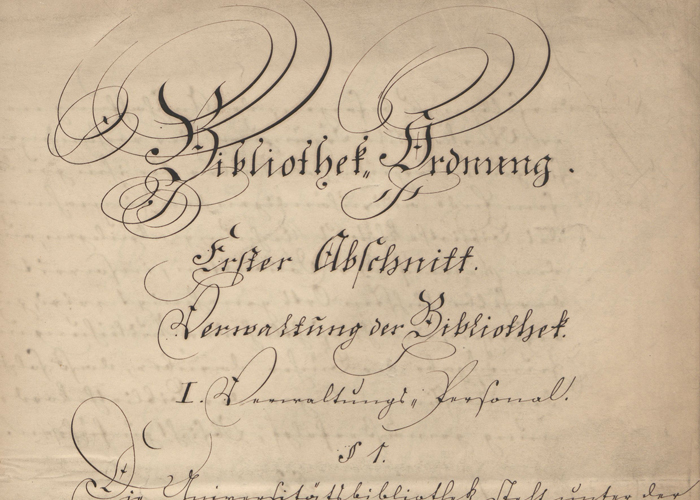 Bibliothek„ Ordnung.
Erster Abschnitt.
Verwaltung der Bibliothek.
I. Verwaltungs„ Personal.
§ 1.
Die Universitätsbibliothek steht unter der